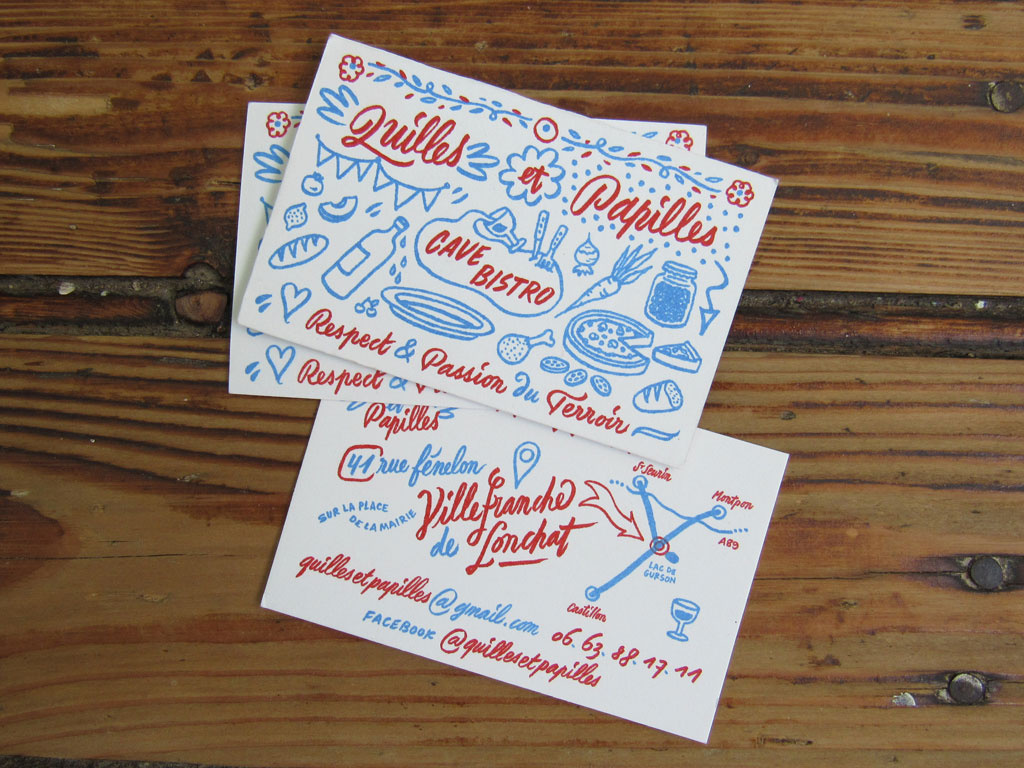 Quilles et Papilles
CAVE
BISTRO
Respect & Passion du Terroir
Respect &
Papilles
41 rue fénelon
SUR LA PLACE
DE LA MAIRIE
Villefranche
de Lonchat
quillesetpapilles@gmail.com
FACEBOOK @quillesetpapilles
St Seurin
Montpon
A89
LAC DE
GURSON
Castillon
06.63.88.17.11